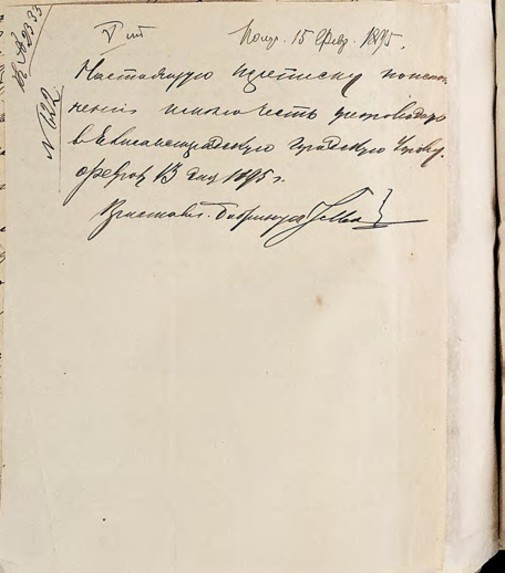 V шт
Получ. 15 Февр. 1895.
№ 122
Настоящую переписку по испол-
нении имею честь препроводить
в Елисаветградскую Городскую Управу.
Февраля 13 дня 1895 г.
Пристав